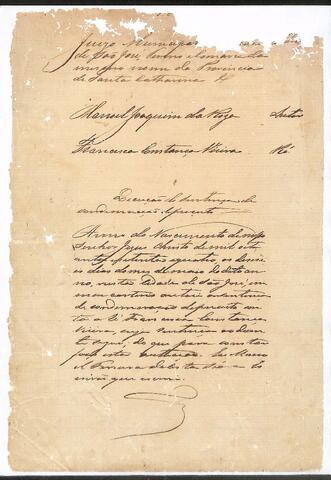 Juizo Municipal
de São José, termo e comarca do
mesmo nome da Provincia
de Santa Catharina
Manoel Joaquim da Roza Autor
Francisca Constança Vieira Ré
Execução de sentença de
condemnação de preceito
Anno do Nascimento de Nosso
Senhor Jezus Christo de mil oito
centos e setenta e quatro os
dias do mes de maio do dito an
no, nesta Cidade de São José, em
meu cartorio autuei a sentença
de condemnação de preceito con
tra a ré Francisca Constança
Vieira, cuja sentença
te segue; do que para constar
faço esta autuação. Eu Mano
el Ferreira da Costa
crivão que escrevi.